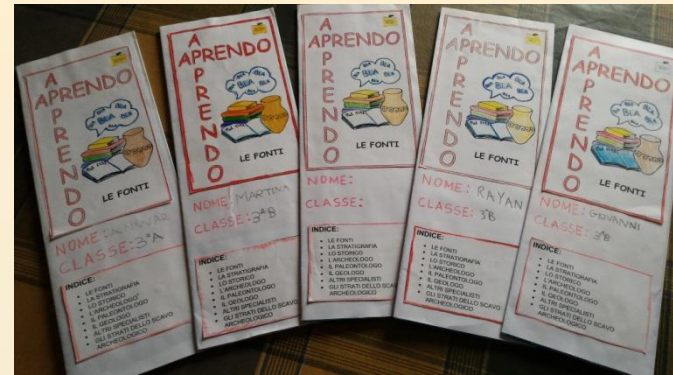 APRENDO
APRENDO
BLA BLA
LE FONTI
NOME:
CLASSE: 3ªA
INDICE:
• LE FONTI
• LA STRATIGRAFIA
• LO STORICO
• L'ARCHEOLOGO
• IL PALEONTOLOGO
• IL GEOLOGO
• ALTRI SPECIALISTI
• GLI STRATI DELLO SCAVO
ARCHEOLOGICO
APRENDO
APRENDO
BLA BLA
LE FONTI
NOME: MARTINA
CLASSE: 3ªB
INDICE:
• LE FONTI
• LA STRATIGRAFIA
• LO STORICO
• L'ARCHEOLOGO
• IL PALEONTOLOGO
• IL GEOLOGO
• ALTRI SPECIALISTI
• GLI STRATI DELLO SCAVO
ARCHEOLOGICO
APRENDO
APRENDO
BLA BLA
LE FONTI
NOME:
CLASSE:
INDICE:
• LE FONTI
• LA STRATIGRAFIA
• LO STORICO
• L'ARCHEOLOGO
• IL PALEONTOLOGO
• IL GEOLOGO
• ALTRI SPECIALISTI
• GLI STRATI DELLO SCAVO
ARCHEOLOGICO
APRENDO
APRENDO
BLA BLA
LE FONTI
NOME: RAYAN
CLASSE: 3ªB
INDICE:
• LE FONTI
• LA STRATIGRAFIA
• LO STORICO
• L'ARCHEOLOGO
• IL PALEONTOLOGO
• IL GEOLOGO
• ALTRI SPECIALISTI
• GLI STRATI DELLO SCAVO
ARCHEOLOGICO
APRENDO
APRENDO
BLA BLA
LE FONTI
NOME: GIOVANNI
CLASSE: 3ªB
INDICE:
• LE FONTI
• LA STRATIGRAFIA
• LO STORICO
• L'ARCHEOLOGO
• IL PALEONTOLOGO
• IL GEOLOGO
• ALTRI SPECIALISTI
• GLI STRATI DELLO SCAVO
ARCHEOLOGICO